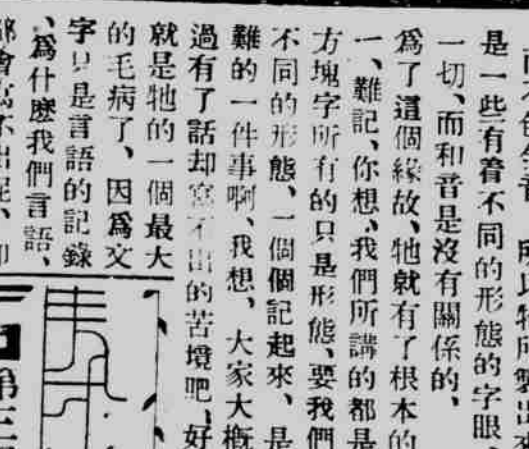 所以牠所寫出來
是一些有着不同的形態的字眼、
一切、而和音是沒有關係的、
爲了這個緣故、牠就有了根本的
一、難記、你想、我們所講的都是
方塊字所有的只是形態、要我們
不同的形態、一個個記起來、是
難的一件事啊、我想、大家大概
過有了話却寫不出的苦境吧、好
就是牠的一個最大
的毛病了、因爲文
字只是言語的記錄
、爲什麽我們言語、
都會寫不出呢、卽
第三